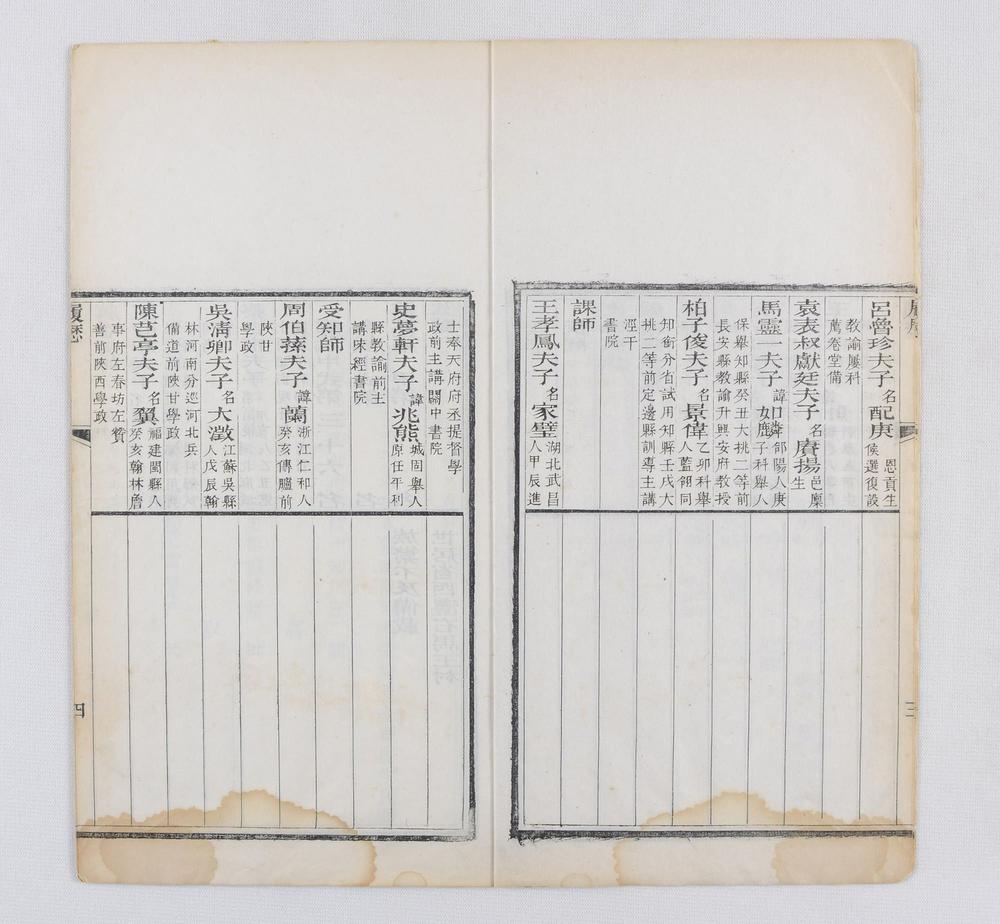 履歷
三
呂魯珍夫子名配庚恩貢生候選復設
教諭屢科薦卷堂備
袁表叔獻廷夫子名賡揚邑廩生
馬靈一夫子諱如麟郃陽人庚子科舉人
保舉知縣癸丑大挑二等前長安縣教諭升興安府教授
柏子俊夫子名景偉乙卯科舉人藍翎同
知銜分省試用知縣壬戌大挑二等前定邊縣訓導主講
涇干書院
課師
王孝鳳夫子名家璧湖北武昌人甲辰進
士奉天府府丞提督學政前主講關中書院
史夢軒夫子諱兆熊城固舉人原任平利
縣教諭前主講味經書院
受知師
周伯蓀夫子諱蘭浙江仁和人癸亥傳臚前
陝甘學政
吳清卿夫子名大澂江蘇吳縣人戊辰翰
林河南分巡河北兵備道前陝甘學政
陳芑亭夫子名翼福建閩縣人癸亥翰林詹
事府左春坊左贊善前陝西學政
履歷
四